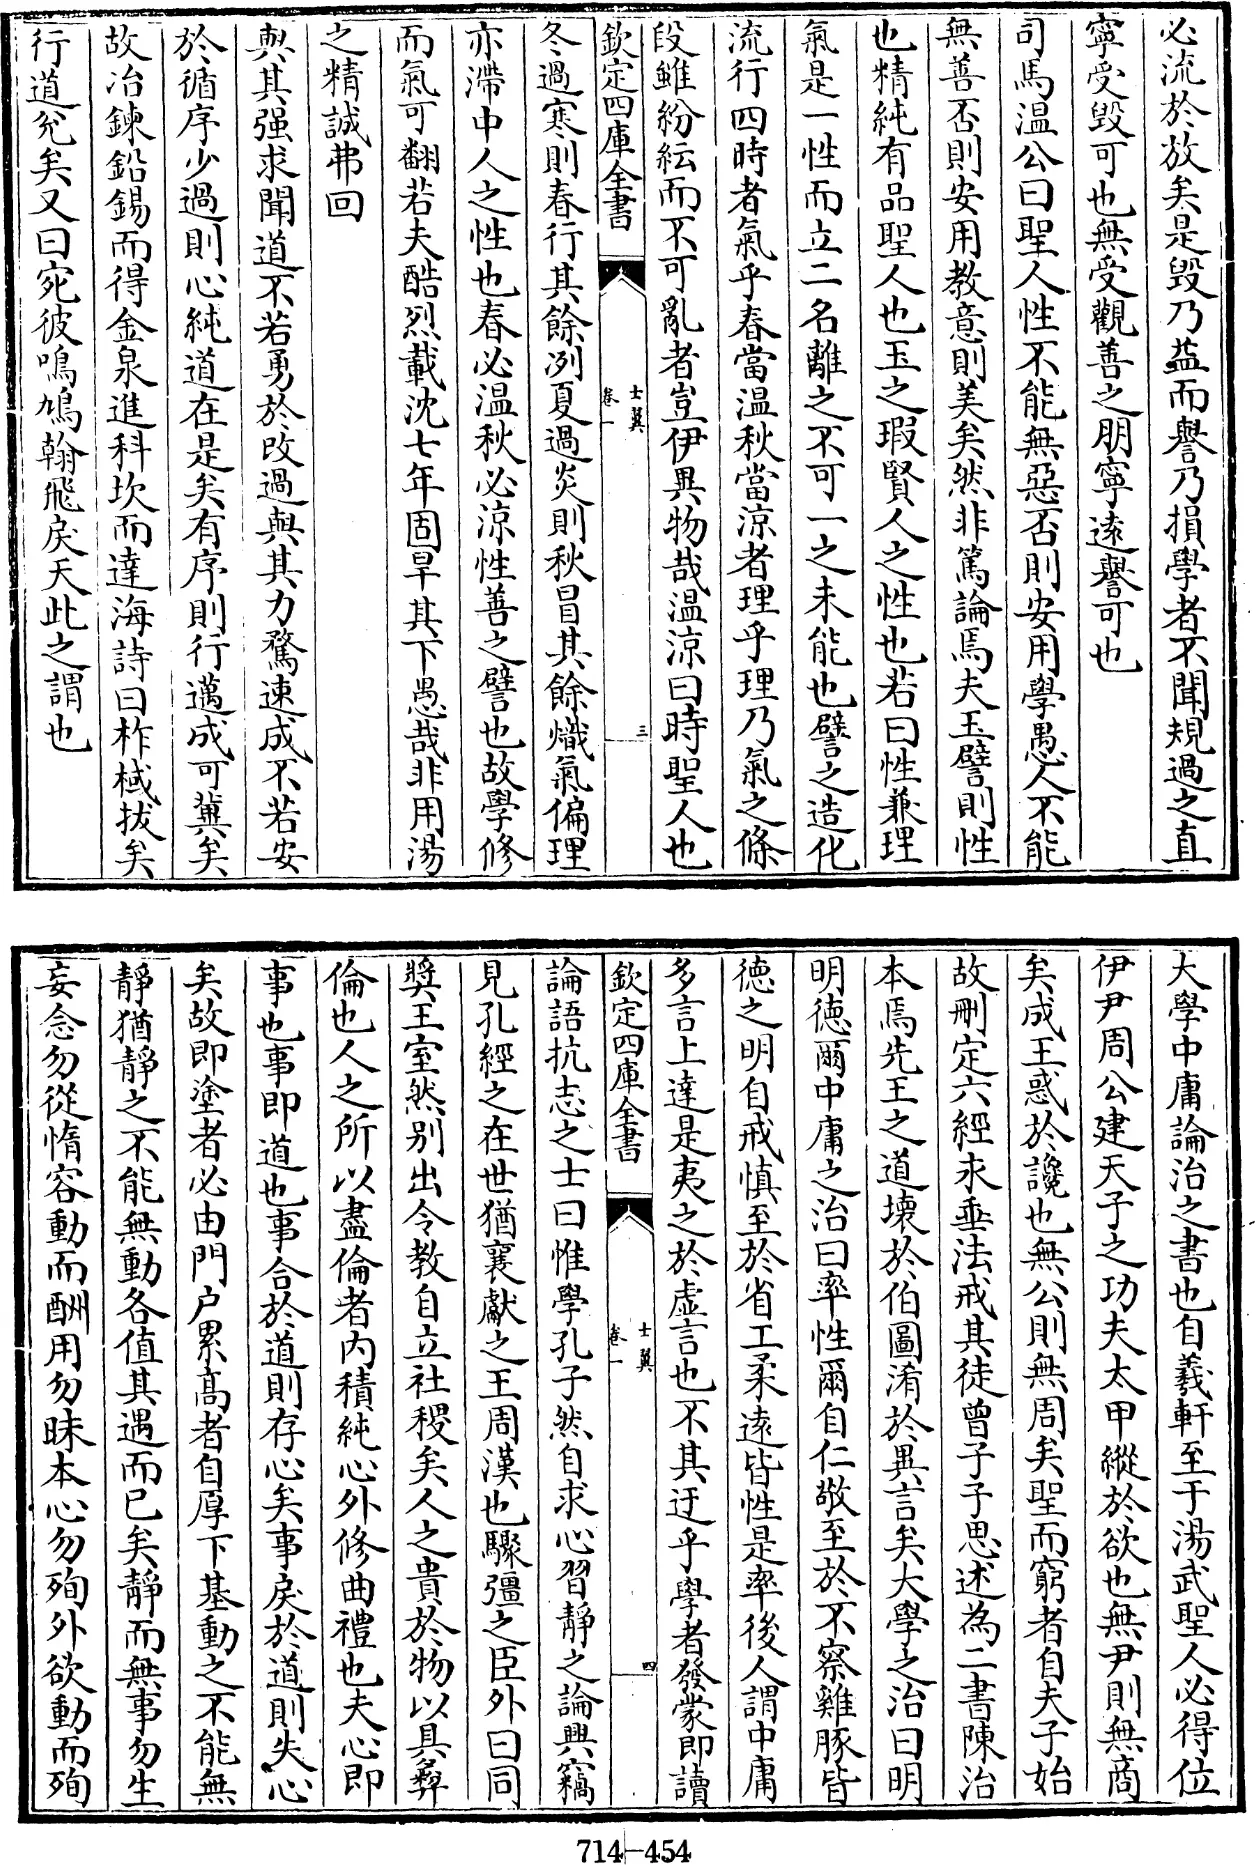 必流於放矣是毀乃益而譽乃損學者不聞規過之直
寧受毀可也無受觀善之朋寧遠譽可也
司馬温公曰聖人性不能無惡否則安用學愚人不能
無善否則安用教意則美矣然非篤論焉夫玉譬則性
也精純有品聖人也玉之瑕賢人之性也若曰性兼理
氣是一性而立二名離之不可一之未能也譬之造化
流行四時者氣乎春當温秋當涼者理乎理乃氣之條
段雖紛紜而不可亂者豈伊異物哉温涼曰時聖人也
欽定四庫全書
士翼
卷一
三
冬過寒則春行其餘冽夏過炎則秋冒其餘熾氣偏理
亦滯中人之性也春必温秋必涼性善之譬也故學修
而氣可翻若夫酷烈載沈七年固旱其下愚哉非用湯
之精誠弗回
與其强求聞道不若勇於改過與其力騖速成不若安
於循序少過則心純道在是矣有序則行邁成可冀矣
故冶鍊鉛錫而得金泉進科坎而達海詩曰柞棫拔矣
行道兊矣又曰宛彼鳴鳩翰飛戾天此之謂也
大學中庸論治之書也自羲軒至于湯武聖人必得位
伊尹周公建天子之功夫太甲縱於欲也無尹則無商
矣成王惑於讒也無公則無周矣聖而窮者自夫子始
故刪定六經求垂法戒其徒曾子子思述為二書陳治
本焉先王之道壞於伯圖淆於異言矣大學之治曰明
明德爾中庸之治曰率性爾自仁敬至於不察雞豚皆
德之明自戒慎至於省工柔遠皆性是率後人謂中庸
多言上達是夷之於虛言也不其迂乎學者發蒙即讀
欽定四庫全書
士翼
卷一
四
論語抗志之士曰惟學孔子然自求心習靜之論興竊
見孔經之在世猶襄獻之王周漢也驟彊之臣外曰同
奬王室然别出令教自立社稷矣人之貴於物以具彝
倫也人之所以盡倫者内積純心外修曲禮也夫心即
事也事即道也事合於道則存心矣事戾於道則失心
矣故即塗者必由門户累高者自厚下基動之不能無
靜猶靜之不能無動各值其遇而已矣靜而無事勿生
妄念勿從惰容動而酬用勿昧本心勿殉外欲動而殉
714-454